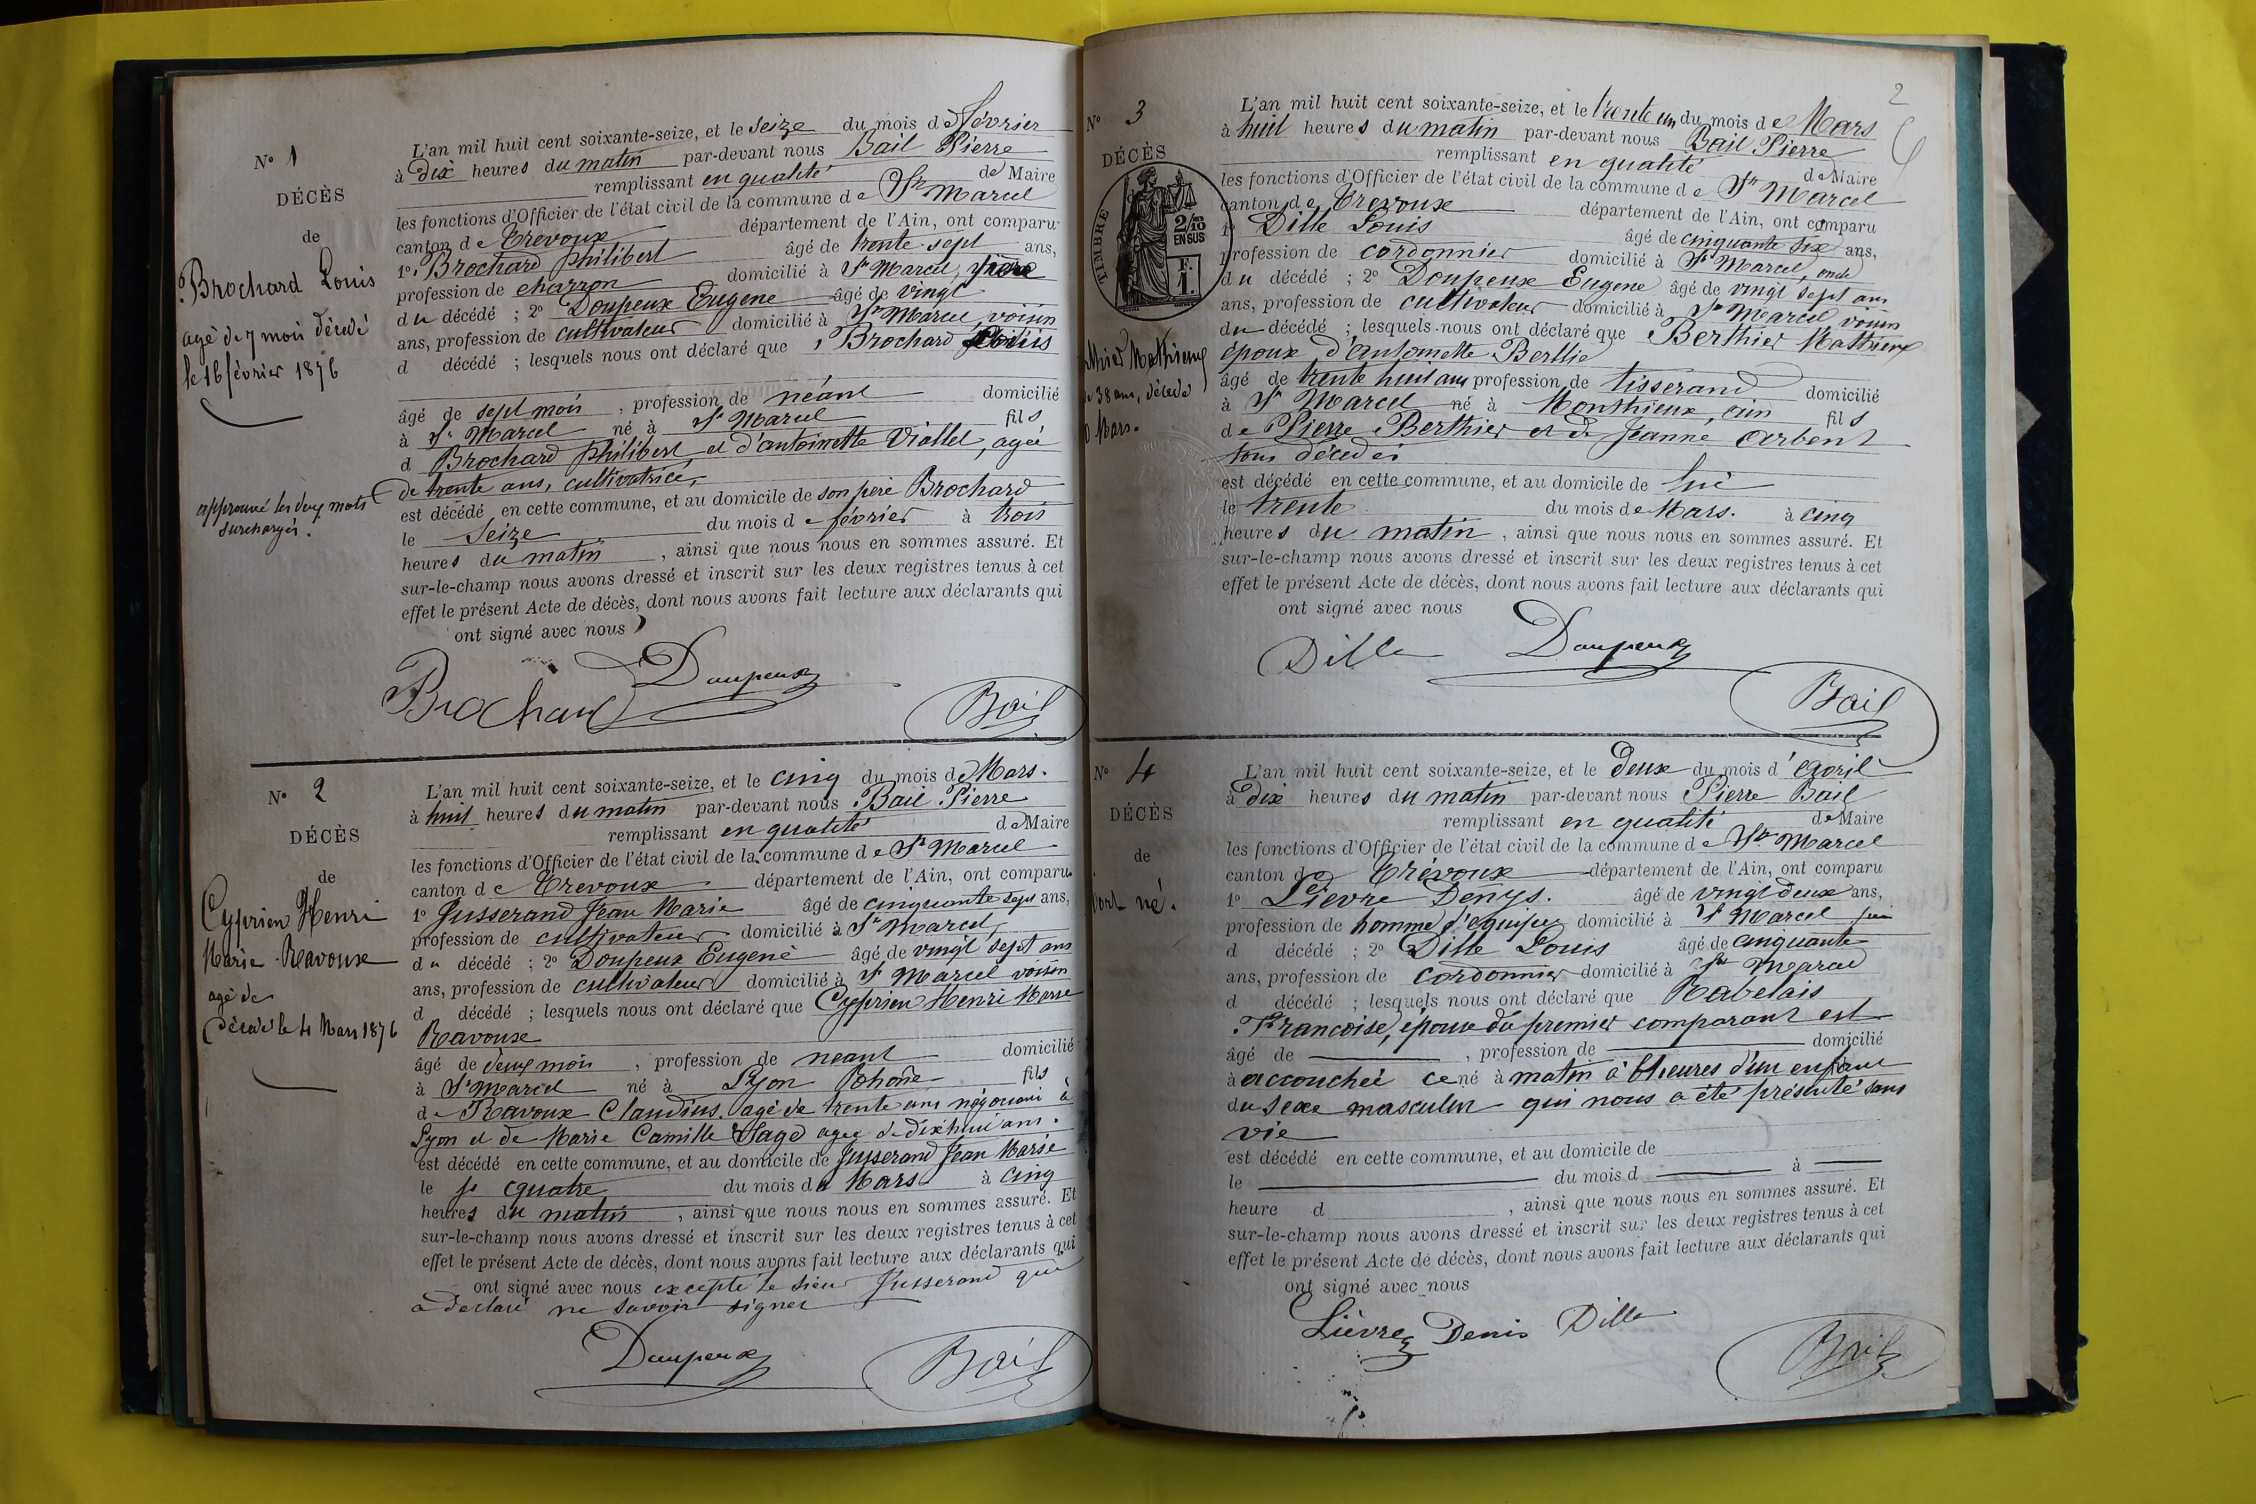 N° 1
DÉCÈS
de
Brochard Louis
agé de 7 mois décédé
le 16 février 1876
approuvé les deux mots
surchargés.
L'an mil huit cent soixante-seize, et le seize du mois de février
à dix heures du matin par-devant nous Bail Pierre
remplissant en qualité de Maire
les fonctions d'Officier de l'état civil de la commune de St Marcel
canton de Trevoux département de l'Ain, ont comparu
1° Brochard philibert âgé de trente-sept ans,
profession de charron domicilié à St Marcel, père
du décédé ; 2° Doupeux Eugene âgé de vingt
ans, profession de cultivateur domicilié à St Marcel, voisin
d décédé ; lesquels nous ont déclaré que Brochard Louis
âgé de sept mois , profession de néant domicilié
à St Marcel né à St Marcel fils
d Brochard philibert et d'antoinette Viallet, agée
de trente ans, cultivatrice,
est décédé en cette commune, et au domicile de son père Brochard
le seize du mois de février à trois
heures du matin , ainsi que nous nous en sommes assuré. Et
sur-le-champ nous avons dressé et inscrit sur les deux registres tenus à cet
effet le présent Acte de décès, dont nous avons fait lecture aux déclarants qui
ont signé avec nous
Doupeux
Brochard
Bail
N° 2
DÉCÈS
de
Cyprien Henri
Marie Ravoux
agé de
décédé le 4 Mars 1876
L'an mil huit cent soixante-seize, et le cinq du mois de Mars.
à huit heures du matin par-devant nous Bail Pierre
remplissant en qualité de Maire
les fonctions d'Officier de l'état civil de la commune de St Marcel
canton de Trevoux département de l'Ain, ont comparu
1° Jusserand Jean Marie âgé de cinquante sept ans,
profession de cultivateur domicilié à St Marcel,
du décédé ; 2° Doupeux Eugenè âgé de vingt sept ans
ans, profession de cultivateur domicilié à St Marcel voisin
d décédé ; lesquels nous ont déclaré que Cyprien Henri Marie
Ravoux
âgé de deux mois , profession de neant domicilié
à St Marcel né à Lyon Rhône fils
de Ravoux Claudius agé de trente ans négociant à
Lyon et de Marie Camille Sage agée de dix huit ans.
est décédé en cette commune, et au domicile de Jusserand Jean Marie
le quatre du mois de Mars à cinq
heures du matin , ainsi que nous nous en sommes assuré. Et
sur-le-champ nous avons dressé et inscrit sur les deux registres tenus à cet
effet le présent Acte de décès, dont nous avons fait lecture aux déclarants qui
ont signé avec nous excepté le sieur Jusserand qui
a déclaré ne savoir signer
Doupeux
Bail
2
N° 3
DÉCÈS
TIMBRE
2/10
EN SUS
F.
1.
thier Mathieux
38 ans, décédé
Mars.
L'an mil huit cent soixante-seize, et le trente un du mois de Mars
à huit heures du matin par-devant nous Bail Pierre
remplissant en qualité de Maire
les fonctions d'Officier de l'état civil de la commune de St Marcel
canton de Trevoux département de l'Ain, ont comparu
1° Dille Louis âgé de cinquante six ans,
profession de cordonnier domicilié à St Marcel, oncle
du décédé ; 2° Doupeux Eugene âgé de vingt sept ans
ans, profession de cultivateur domicilié à St Marcel voisin
du décédé ; lesquels nous ont déclaré que Berthier Mathieux
époux d'antoinette Berthie
âgé de trente huit ans profession de tisserand domicilié
à St Marcel né à Monthieux, ain fils
de Pierre Berthier et de Jeanne Arbent
tous décédés
est décédé en cette commune, et au domicile de lui
le trente du mois de Mars. à cinq
heures du matin , ainsi que nous nous en sommes assuré. Et
sur-le-champ nous avons dressé et inscrit sur les deux registres tenus à cet
effet le présent Acte de décès, dont nous avons fait lecture aux déclarants qui
ont signé avec nous
Dille Doupeux
Bail
N° 4
DÉCÈS
de
mort né.
L'an mil huit cent soixante-seize, et le deux du mois d'avril
à dix heures du matin par-devant nous Pierre Bail
remplissant en qualité de Maire
les fonctions d'Officier de l'état civil de la commune de St Marcel
canton de Trévoux département de l'Ain, ont comparu
1° Lièvre Denys. âgé de vingt deux ans,
profession de homme d'équipe domicilié à St Marcel
d décédé ; 2° Dille Louis âgé de cinquante
ans, profession de cordonnier domicilié à St Marcel
d décédé ; lesquels nous ont déclaré que Rabelais
Francoise, épouse du premier comparant est
âgé de , profession de domicilié
à accouchée ce né à matin à 6 heures d'un enfant
du sexe masculin qui nous a été présenté sans
vie
est décédé en cette commune, et au domicile de
le du mois d à
heure d , ainsi que nous nous en sommes assuré. Et
sur-le-champ nous avons dressé et inscrit sur les deux registres tenus à cet
effet le présent Acte de décès, dont nous avons fait lecture aux déclarants qui
ont signé avec nous
Lièvre Denis Dille
Bail